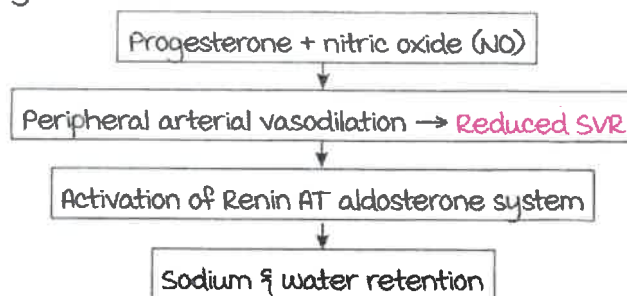 Progesterone + nitric oxide (NO)
Peripheral arterial vasodilation → Reduced SVR
Activation of Renin AT aldosterone system
Sodium & water retention